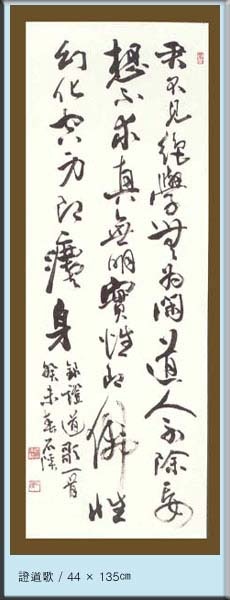 君不見絶學無為閑道人不除妄
想不求真無明實性即佛性
幻化空身即灋身
錄證道歌一首
癸未春石
證道歌 / 44 × 135㎝